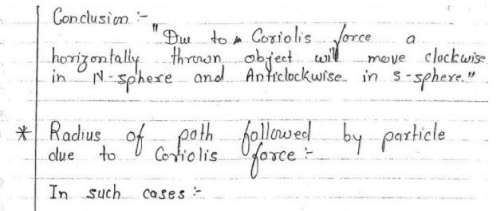 Conclusion :-
"Due to a Coriolis force a
horizontally thrown object will move clockwise
in N-sphere and Anticlockwise in S-sphere."
* Radius of path followed by particle
due to Coriolis force :-
In such cases :-